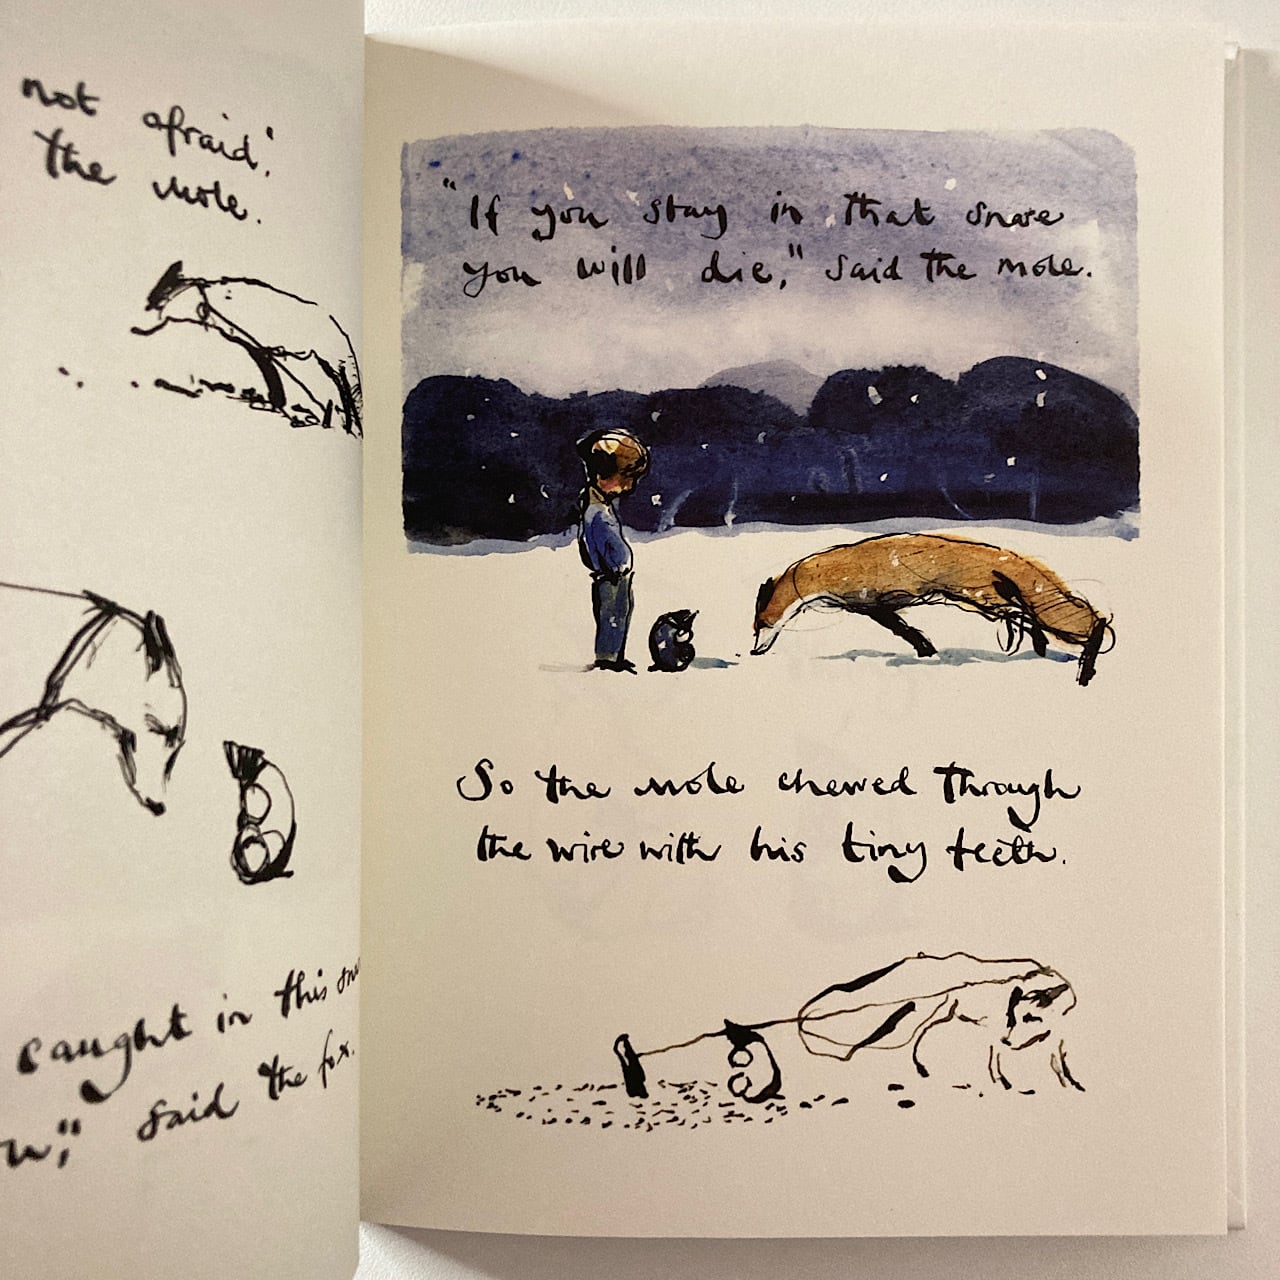 not afraid,"
the mole.
caught in this
said the fox.
"If you stay in that snare
you will die," said the mole.
So the mole chewed through
the wire with his tiny teeth.